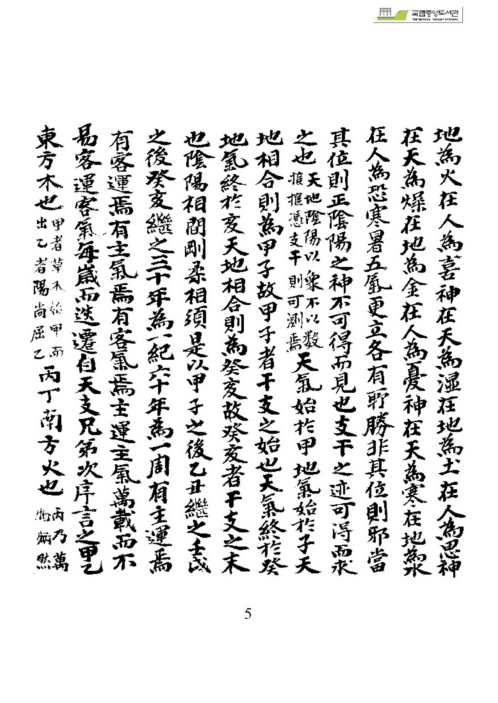 국립중앙도서관
地為火在人為喜神在天為濕在地為土在人為思神
在天為燥在地為金在人為憂神在天為寒在地為水
在人為恐寒暑五氣更立各有所勝非其位則邪當
其位則正陰陽之神不可得而見也支干之迹可得而求
之也天地陰陽以象不以數推㨿憑支干則可測焉天氣始於甲地氣始於子天
地相合則為甲子故甲子者干支之始也天氣終於癸
地氣終於亥天地相合則為癸亥故癸亥者干支之末
也陰陽相間剛柔相須是以甲子之後乙丑繼之壬戌
之後癸亥繼之三十年為一紀六十年為一周有主運焉
有客運焉有主氣焉有客氣焉主運主氣萬載而不
易客運客氣每歲而迭遷自天支兄弟次序言之甲乙
東方木也甲者草木始甲而出乙者陽尚屈乙丙丁南方火也丙乃萬物炳然
5